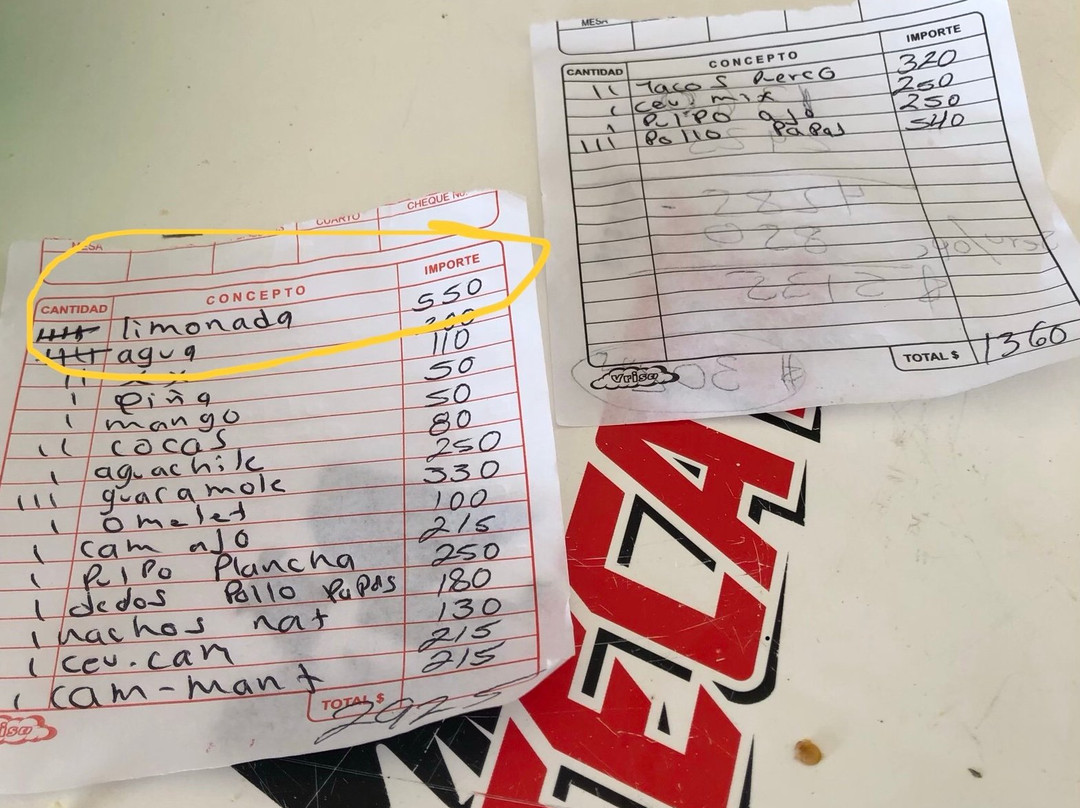 MESA
CUARTO
CHEQUE NO
CANTIDAD CONCEPTO IMPORTE
limonada 550
agua 200
II XX 110
I piña 50
I mango 50
II cocas 80
I aguachile 250
III guaramole 330
I omelet 100
I cam ajo 215
I pulpo plancha 250
I dedos pollo papas 180
I nachos nat 130
I cev. cam 215
I cam-mant 215
TOTAL $ 2925
MESA
CANTIDAD CONCEPTO IMPORTE
II Tacos perco 320
I cev. mix 250
I pulpo ajo 250
III pollo papas 540
TOTAL $ 1360
Vrisa